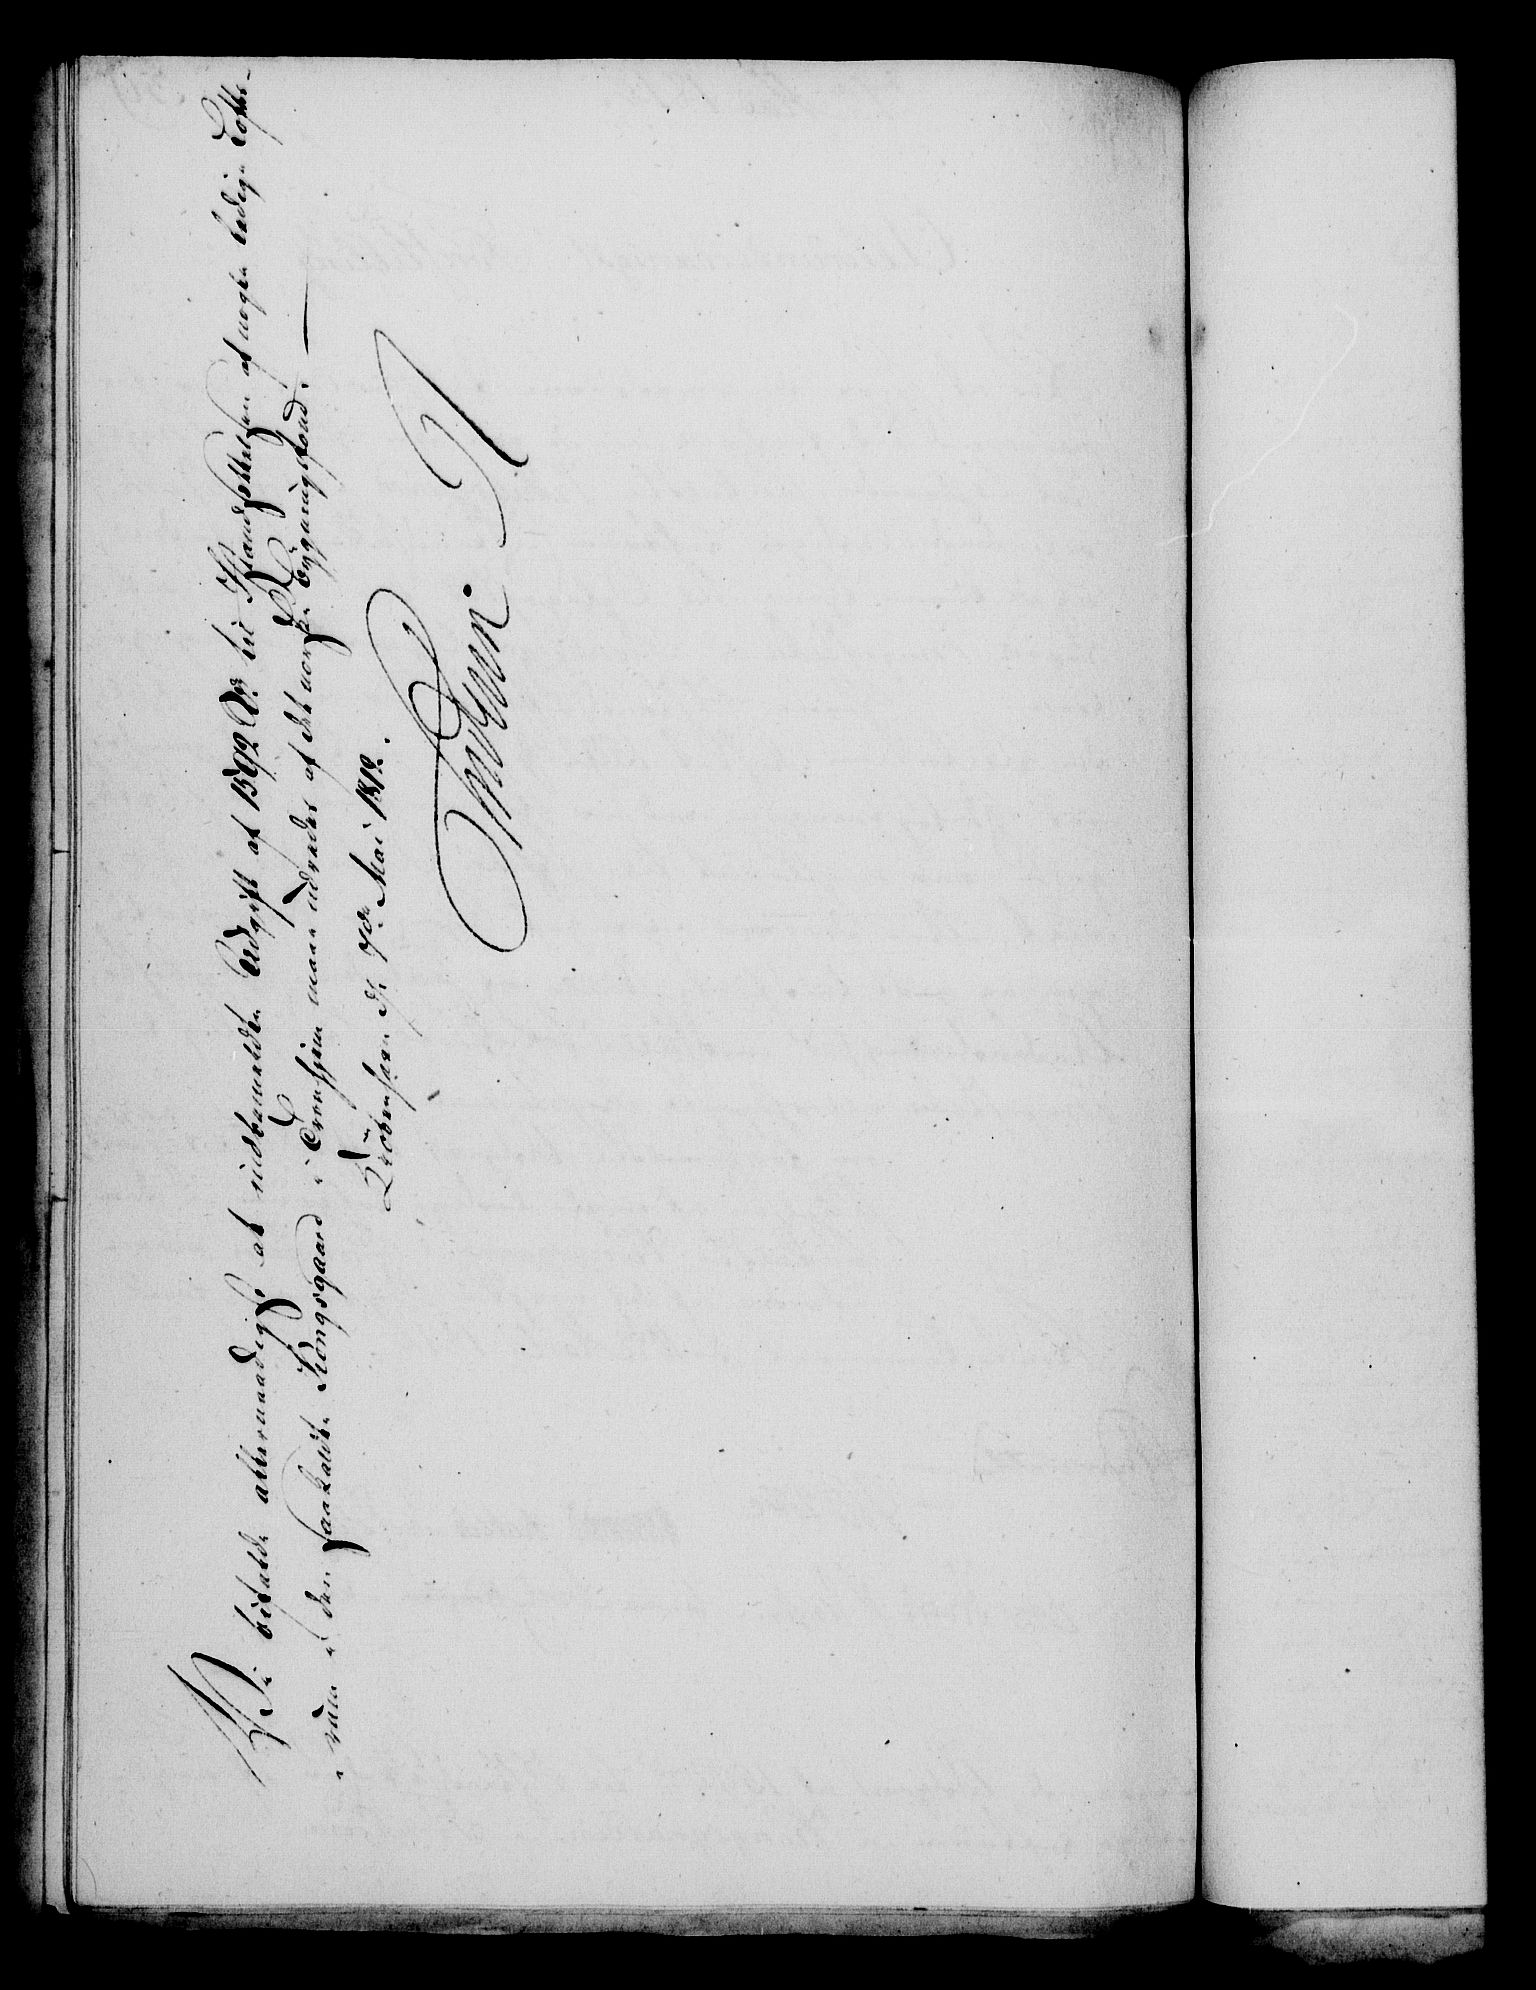 Vi bifalde allernaadigst at indbemeldte Udgift af 1592 Rd. til Istandsættelsen af nogle ledige Lofts-
rum i den saakaldte Kongsgaard i Tronhjem maae udredes af det norske Bygningsfond. —
Kiöbenhavn d. 7de Mai 1812.
Frederik R